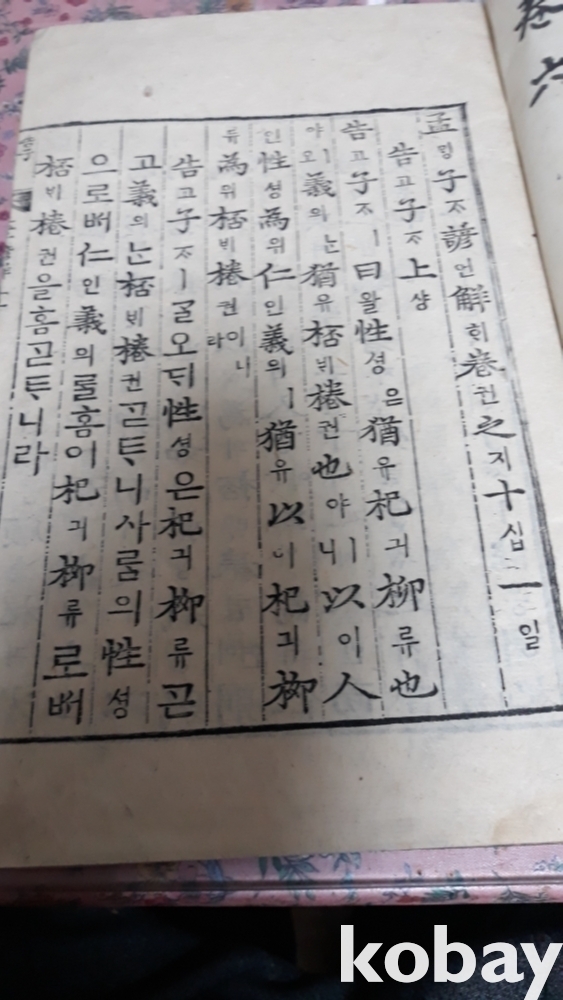 卷六
孟ᄆᆡᆼ子ᄌᆞ諺언解ᄒᆡ卷권之지十십一일
告고子ᄌᆞ上샹
告고子ᄌᆞㅣ曰왈性셩은猶유杞긔柳류也
야오義의ᄂᆞᆫ猶유桮ᄇᆡ棬권也야ㅣ니以이人
인性셩為위仁인義의ㅣ猶유以이杞긔柳
류為위桮ᄇᆡ棬권이니라
告고子ᄌᆞㅣᄀᆞᆯ오ᄃᆡ性셩은杞긔柳류ᄀᆞᆮ
고義의ᄂᆞᆫ桮ᄇᆡ棬권ᄀᆞᆮᄐᆞ니사ᄅᆞᆷ의性셩
으로ᄡᅥ仁인義의ᄅᆞᆯ홈이杞긔柳류로ᄡᅥ
桮ᄇᆡ棬권을홈ᄀᆞᆮᄐᆞ니라
kobay